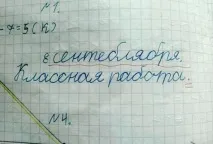 №1.
-7=5(к)
8 сентеблября.
Классная работа.
№4.